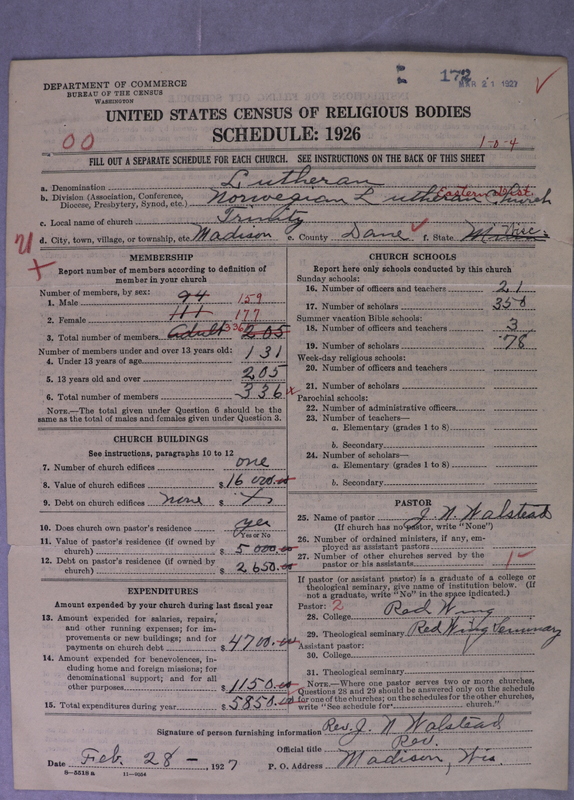 172
MAR 21 1927
DEPARTMENT OF COMMERCE
BUREAU OF THE CENSUS
WASHINGTON
UNITED STATES CENSUS OF RELIGIOUS BODIES
SCHEDULE: 1926
00
1-0-4
FILL OUT A SEPARATE SCHEDULE FOR EACH CHURCH. SEE INSTRUCTIONS ON THE BACK OF THIS SHEET
a. Denomination Lutheran
b. Division (Association, Conference, Diocese, Presbytery, Synod, etc.) Norwegian Lutheran Church Eastern Dist.
c. Local name of church Trinity
d. City, town, village, or township, etc. Madison e. County Dane f. State Wisc.
MEMBERSHIP
Report number of members according to definition of member in your church
Number of members, by sex:
1. Male 94 159
2. Female 111 177
3. Total number of members Adult 336 205
Number of members under and over 13 years old:
4. Under 13 years of age 131
5. 13 years old and over 205
6. Total number of members 336 x
NOTE.—The total given under Question 6 should be the same as the total of males and females given under Question 3.
CHURCH BUILDINGS
See instructions, paragraphs 10 to 12
7. Number of church edifices one
8. Value of church edifices $16 000.00
9. Debt on church edifices none $
10. Does church own pastor's residence yes
Yes or No
11. Value of pastor's residence (if owned by church) $ 5 000.00
12. Debt on pastor's residence (if owned by church) $ 2 650.00
EXPENDITURES
Amount expended by your church during last fiscal year
13. Amount expended for salaries, repairs, and other running expenses; for improvements or new buildings; and for payments on church debt $4700.00
14. Amount expended for benevolences, including home and foreign missions; for denominational support; and for all other purposes $1150.00
15. Total expenditures during year $5850.00
CHURCH SCHOOLS
Report here only schools conducted by this church
Sunday schools:
16. Number of officers and teachers 21
17. Number of scholars 350
Summer vacation Bible schools:
18. Number of officers and teachers 3
19. Number of scholars 78
Week-day religious schools:
20. Number of officers and teachers
21. Number of scholars
Parochial schools:
22. Number of administrative officers
23. Number of teachers—
a. Elementary (grades 1 to 8)
b. Secondary
24. Number of scholars—
a. Elementary (grades 1 to 8)
b. Secondary
PASTOR
25. Name of pastor J. N. Walstead
(If church has no pastor, write "None")
26. Number of ordained ministers, if any, employed as assistant pastors
27. Number of other churches served by the pastor or his assistants 1
If pastor (or assistant pastor) is a graduate of a college or theological seminary, give name of institution below. (If not a graduate, write "No" in the space indicated.)
Pastor: 2
28. College Red Wing
29. Theological seminary Red Wing Seminary
Assistant pastor:
30. College
31. Theological seminary
NOTE.—Where one pastor serves two or more churches, Questions 28 and 29 should be answered only on the schedule for one of the churches; on the schedules for the other churches, write "See schedule for church."
Signature of person furnishing information Rev. J. N. Walstead
Official title Rev.
Date Feb. 28 - 1927 P. O. Address Madison, Wis.
8—5518 a 11—9264